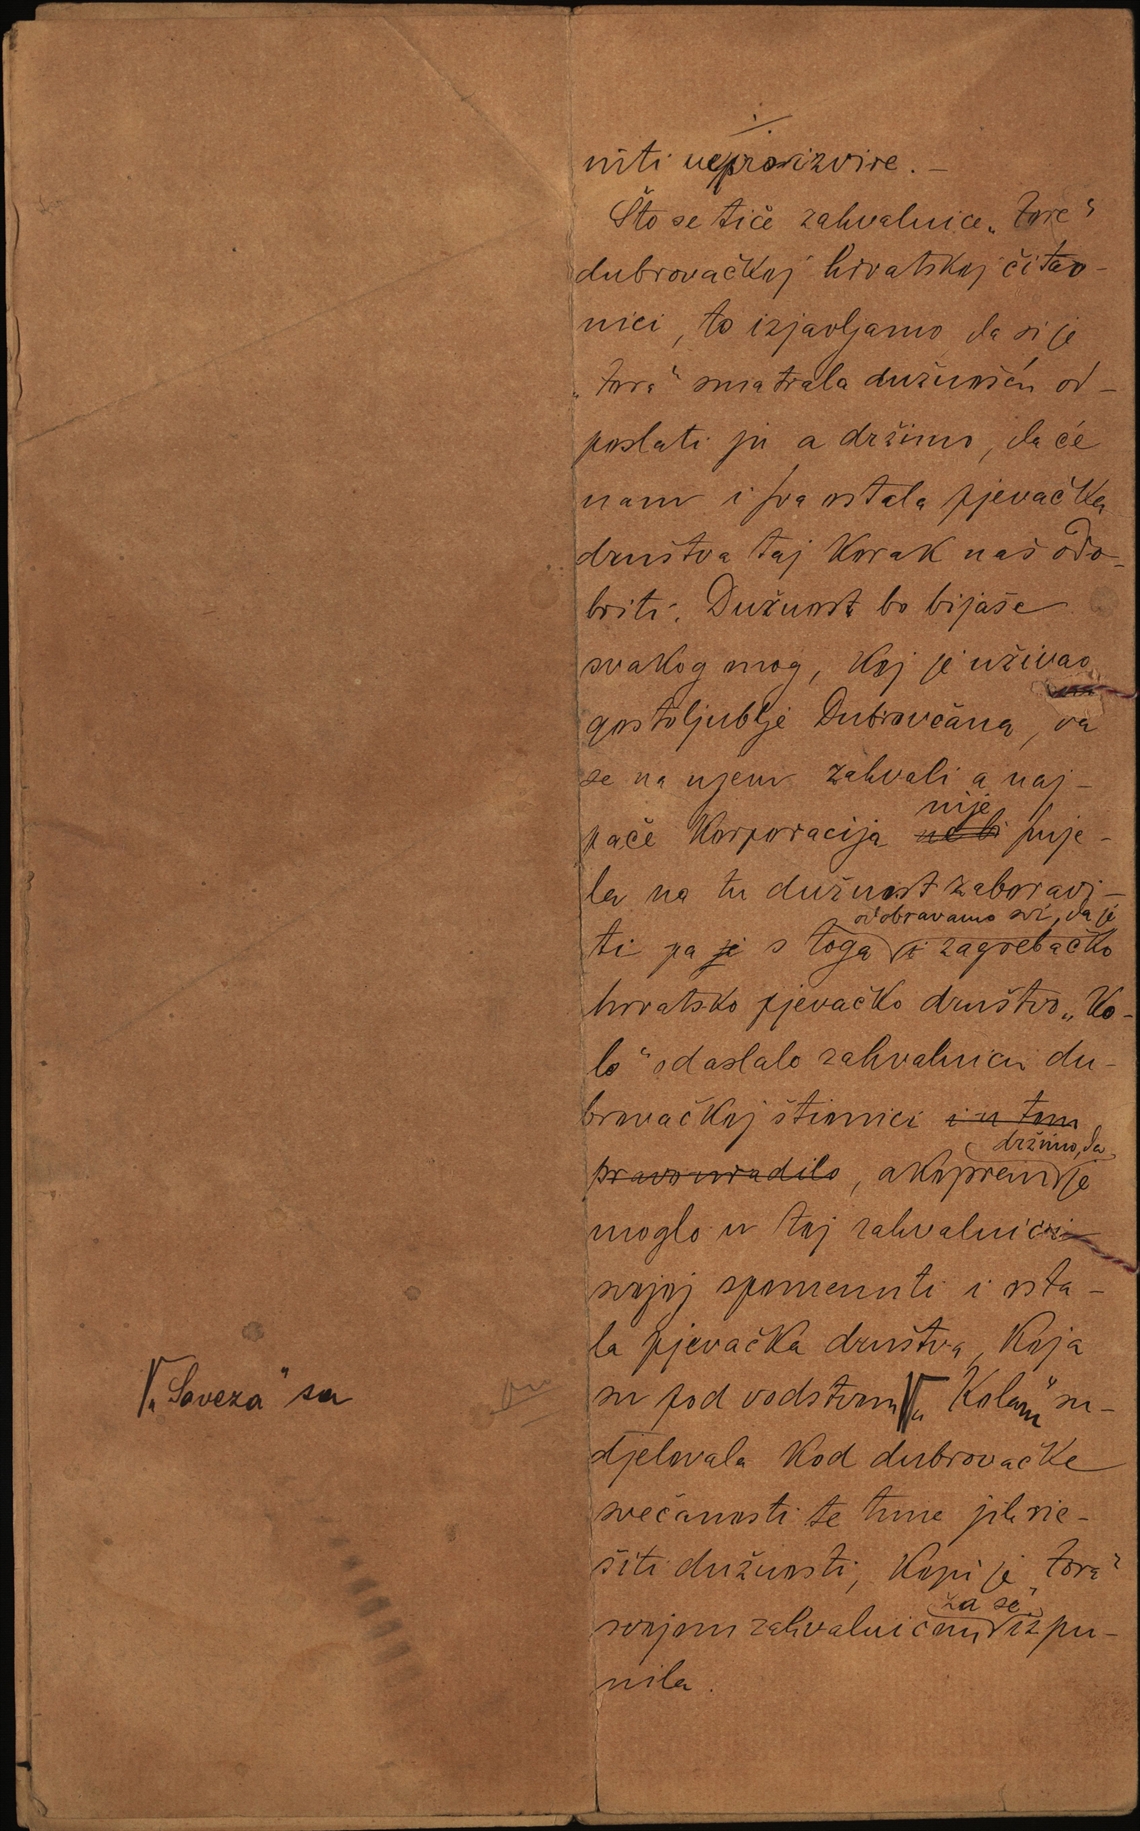 niti neproizvire. –
Što se tiče zahvalnice „Zore"
dubrovačkoj hrvatskoj čitao-
nici, to izjavljamo da si je
„Zora" smatrala dužnošću od-
poslati ju a držimo, da će
nam i sva ostala pjevačka
društva taj korak naš odo-
briti. Dužnost bo bijaše
svakog mog, koj je uživao
gostoljublje Dubrovčana, da
se na njem zahvali a naj-
pače korporacija ne bi smje-
nije
la na tu dužnost zaboravi-
odobravamo svi, da je
ti pa je s toga i zagrebačko
hrvatsko pjevačko društvo „Ko-
lo" odaslalo zahvalnicu du-
brovačkoj štionici i u tom
držimo, da
pravo uradilo, akoprem je
moglo u toj zahvalnici
svojoj spomenuti i osta-
la pjevačka društva, koja
su pod vodstvom „Kolam" su-
„Saveza" sa
djelovala kod dubrovačke
svečanosti te time jih rie-
šiti dužnosti, koju je Zora"
za se
svojom zahvalnicom izpu-
nila.